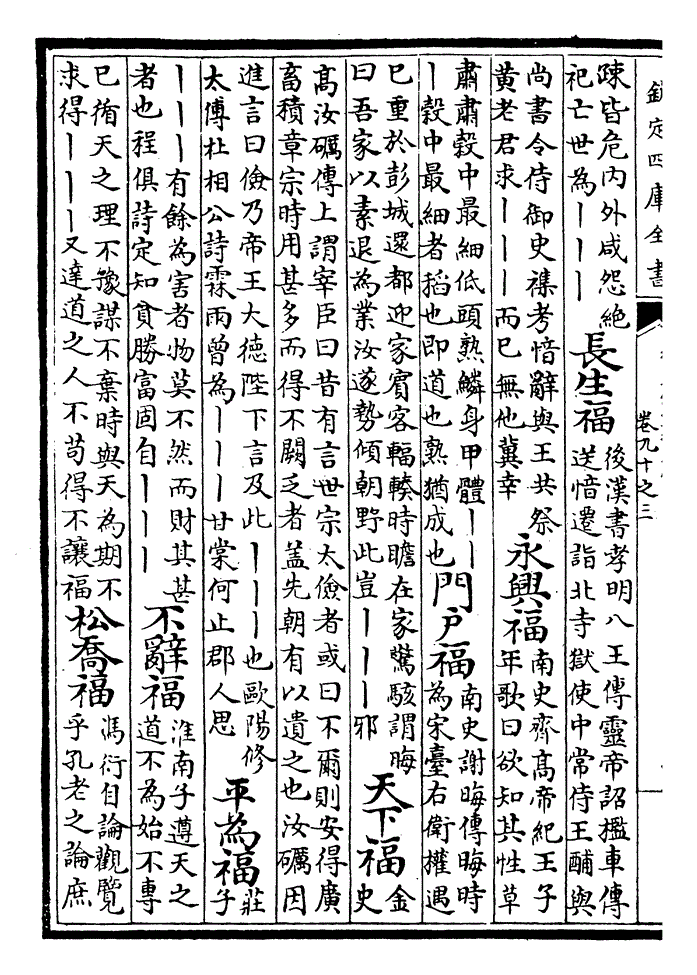 欽定四庫全書
卷九十之三
疎皆危内外咸怨絶
祀亡世為｜｜｜
長生福
後漢書孝明八王傳靈帝詔檻車傳
送愔遷詣北寺獄使中常侍王酺與
尚書令侍御史襍考愔辭與王共祭
黄老君求｜｜｜而已無他冀幸
永興福
南史齊髙帝紀王子
年歌曰欲知其性草
肅肅穀中最細低頭熟鱗身甲體｜｜
｜穀中最細者稻也即道也熟猶成也
門户福
南史謝晦傳晦時
為宋臺右衛權遇
已重於彭城還都迎家賓客輻輳時瞻在家驚駭謂晦
曰吾家以素退為業汝遂勢傾朝野此豈｜｜｜邪
天下福
金
史
髙汝礪傳上謂宰臣曰昔有言世宗太儉者或曰不爾則安得廣
畜積章宗時用甚多而得不闕乏者蓋先朝有以遺之也汝礪因
進言曰儉乃帝王大德陛下言及此｜｜｜也歐陽修
太傅杜相公詩霖雨曾為｜｜｜甘棠何止郡人思
平為福
莊
子
｜｜｜有餘為害者物莫不然而財其甚
者也程俱詩定知貧勝富固自｜｜｜
不辭福
淮南子遵天之
道不為始不專
已循天之理不豫謀不棄時與天為期不
求得｜｜｜又達道之人不苟得不讓福
松喬福
馮衍自論觀覽
乎孔老之論庶